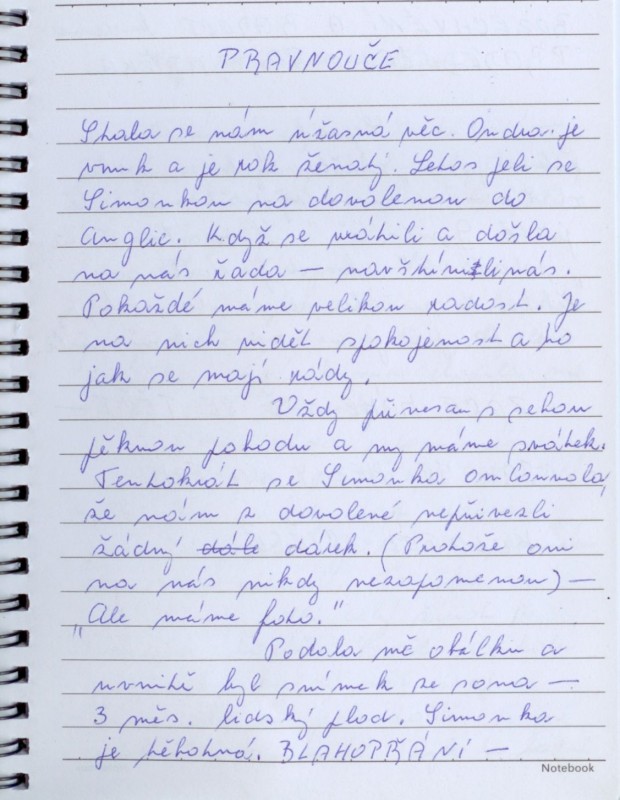 PRAVNOUČE
Stala se nám úžasná věc. Ondra je
vnuk a je rok ženatý. Letos jeli se
Simonkou na dovolenou do
Anglie. Když se vrátili a došla
na nás řada – navštívili nás.
Pokaždé máme velikou radost. Je
na nich vidět spokojenost a to
jak se mají rády.
Vždy přinesou s sebou
pěknou pohodu a my máme svátek.
Tentokrát se Simonka omlouvala,
že nám z dovolené nepřivezli
žádný dále dárek. (Protože oni
na nás nikdy nezapomenou) –
„Ale máme foto."
Podala mě obálku a
uvnitř byl snímek ze sona –
3 měs. lidský plod. Simonka
je těhotná. BLAHOPŘÁNÍ –
Notebook